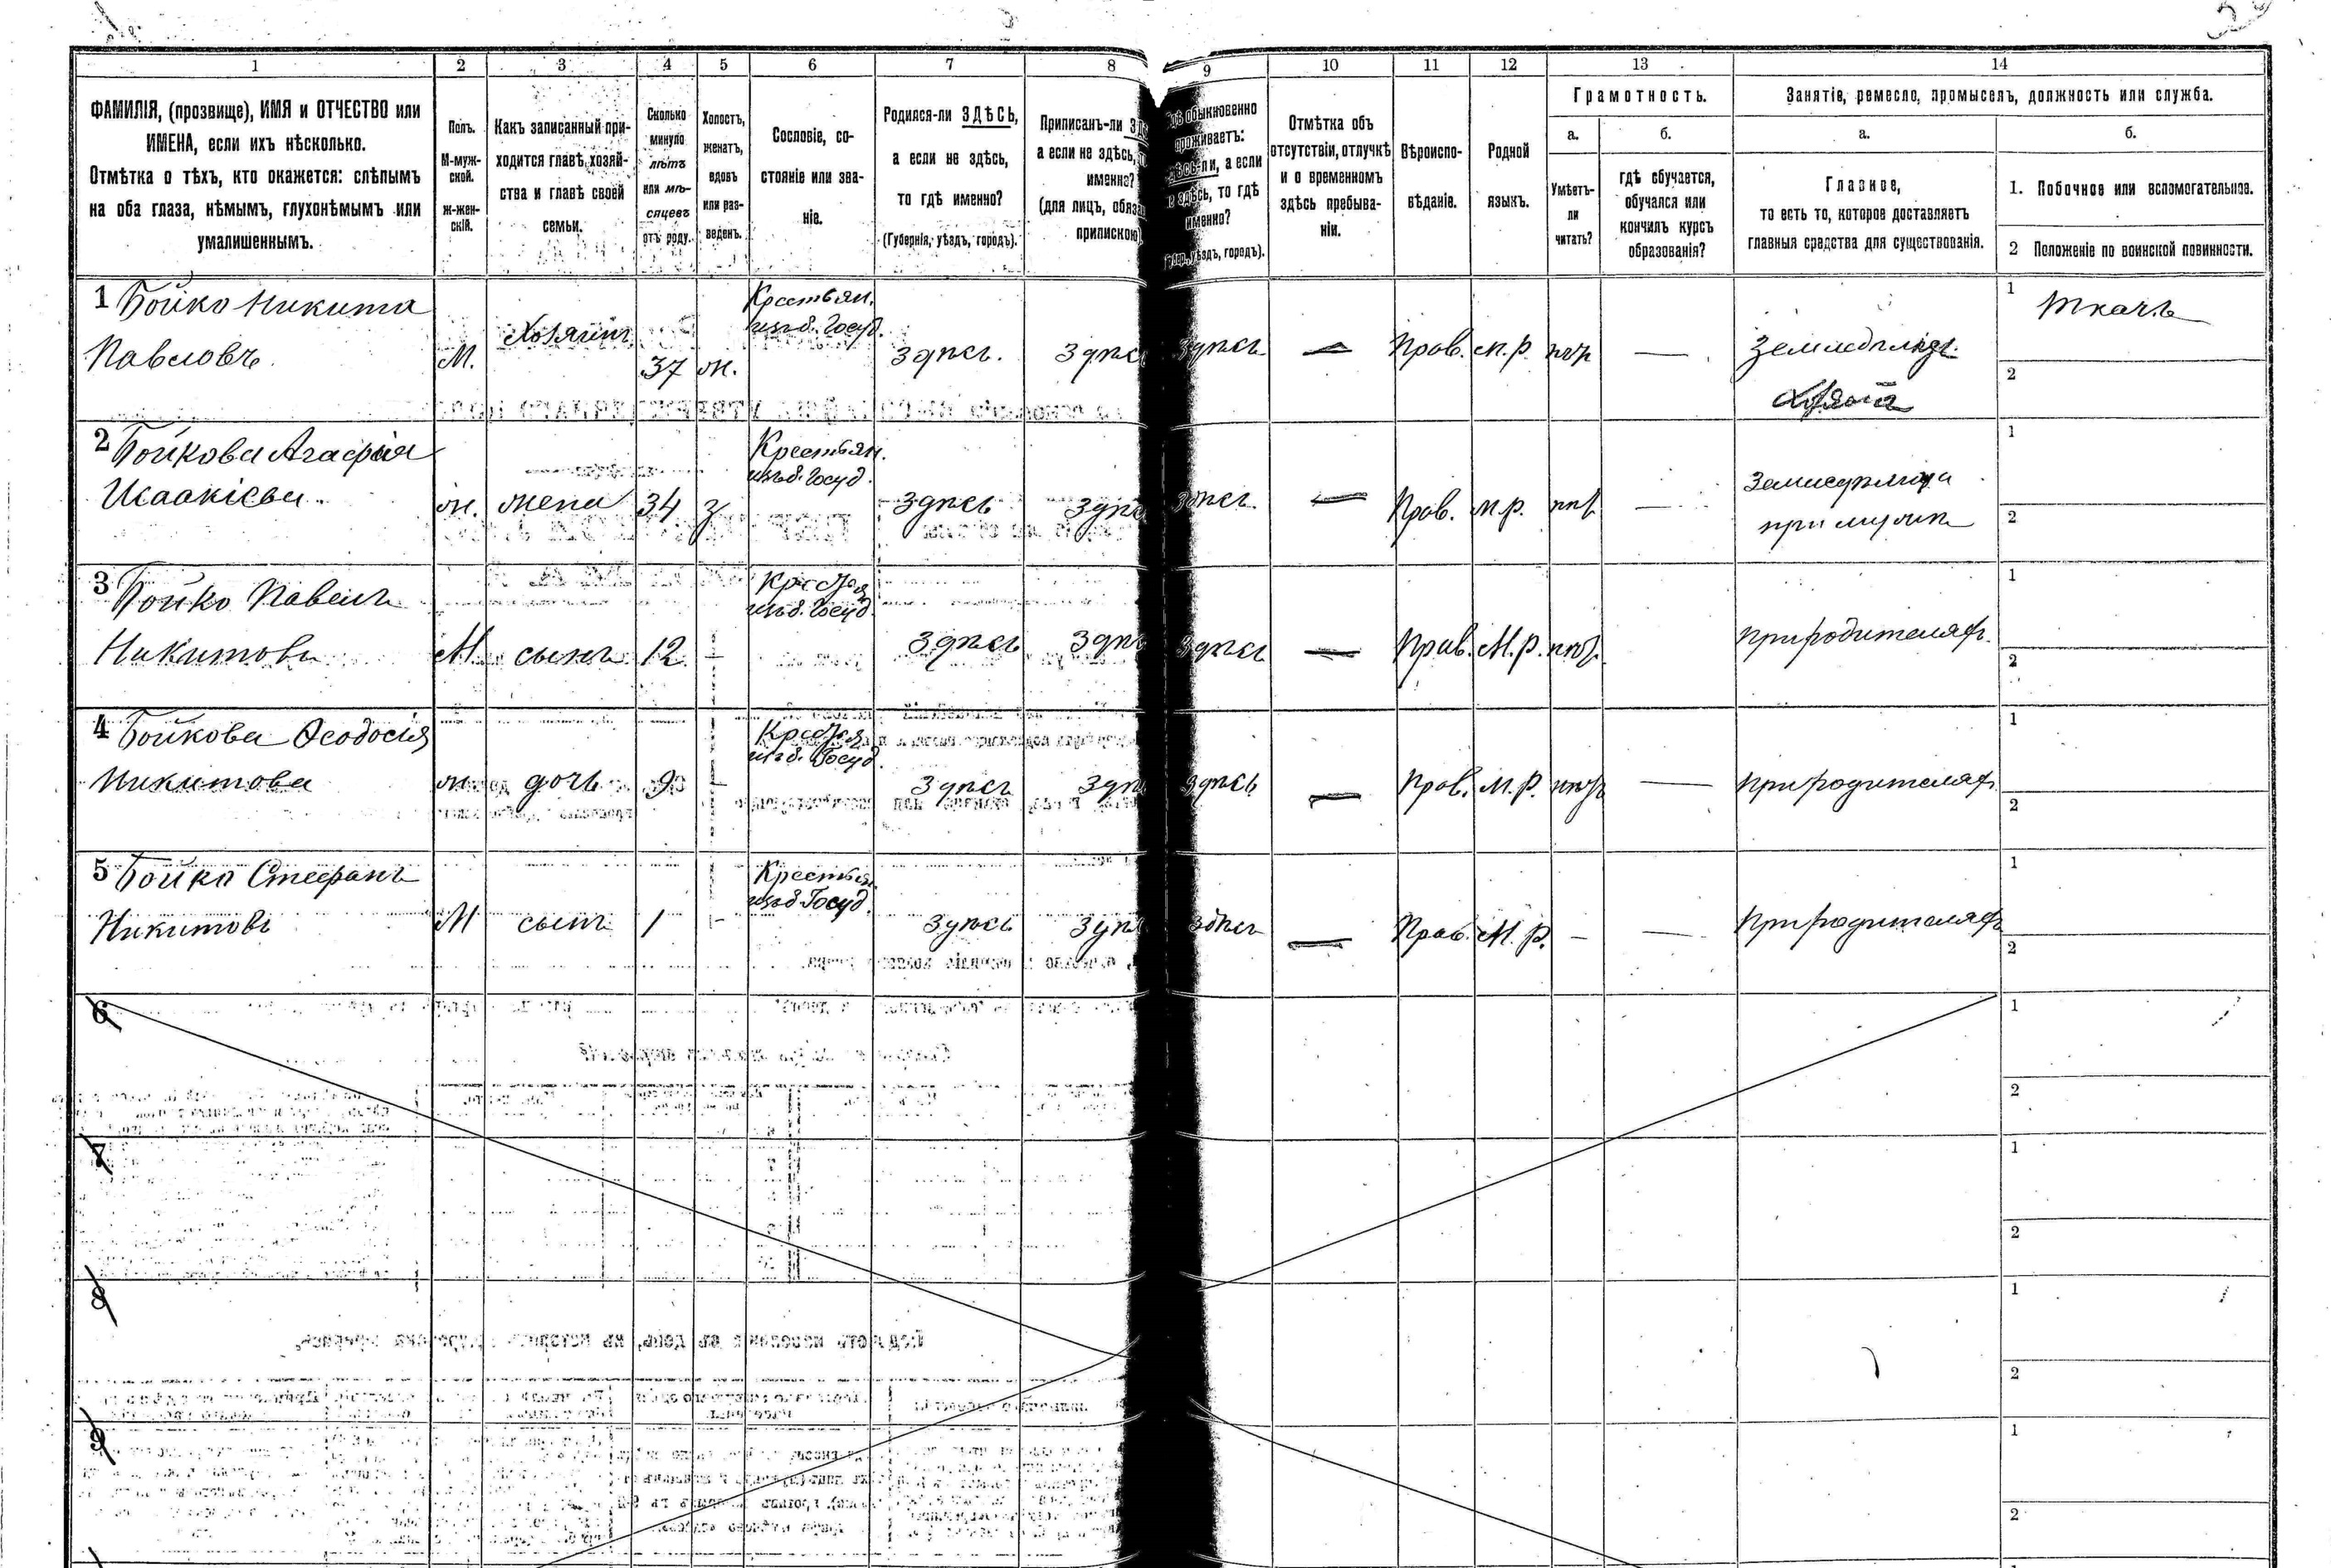 1
2
3
4
5
6
7
8
9
10
11
12
13
14
ФАМИЛІЯ, (прозвище), ИМЯ и ОТЧЕСТВО или
ИМЕНА, если ихъ нѣсколько.
Отмѣтка о тѣхъ, кто окажется: слѣпымъ
на оба глаза, нѣмымъ, глухонѣмымъ или
умалишеннымъ.
Полъ.
М-муж-
ской.
Ж-жен-
скій.
Какъ записанный при-
ходится главѣ хозяй-
ства и главѣ своей
семьи.
Сколько
минуло
лѣтъ
или мѣ-
сяцевъ
отъ роду.
Холостъ,
женатъ,
вдовъ
или раз-
веденъ.
Сословіе, со-
стояніе или зва-
ніе.
Родился-ли ЗДѢСЬ,
а если не здѣсь,
то гдѣ именно?
(Губернія, уѣздъ, городъ).
Приписанъ-ли
а если не здѣсь,
именно?
(для лицъ,
припискою
обыкновенно
проживаетъ:
а если
здѣсь, то гдѣ
именно?
уѣздъ, городъ).
Отмѣтка объ
отсутствіи, отлучкѣ
и о временномъ
здѣсь пребыва-
ніи.
Вѣроиспо-
вѣданіе.
Родной
языкъ.
Грамотность.
а.
Умѣетъ-
ли
читать?
б.
гдѣ обучается,
обучался или
кончилъ курсъ
образованія?
Занятіе, ремесло, промыселъ, должность или служба.
а.
Главное,
то есть то, которое доставляетъ
главныя средства для существованія.
б.
1. Побочное или вспомогательное.
2 Положеніе по воинской повинности.
1 Бойко Никита
Павловъ
М.
Хозяинъ
37
ж.
Крестьян.
изъ б. Госуд.
Здѣсь.
Здѣс
Здѣсь
—
Прав.
М.Р.
нѣт
—
Земледѣлецъ
Хозяинъ
1 Ткачъ
2
2 Бойкова Агафія
Исаакіева
ж.
жена
34
з
Крестьян.
изъ б. Госуд.
Здѣсь
Здѣс
Здѣсь
—
Прав.
М.Р.
нѣт
—
при мужѣ
1
2
3 Бойко Павелъ
Никитовъ
М
сынъ
12
—
изъ б. Госуд.
Здѣсь
Здѣс
Здѣсь
—
Прав.
М.Р.
нѣт
При родителяхъ
1
2
4 Бойкова Ѳеодосія
Никитова
ж.
дочь
9
—
изъ б. Госуд.
Здѣсь
Здѣс
Здѣсь
—
Прав.
М.Р.
нѣт
—
При родителяхъ
1
2
5 Бойко Стефанъ
Никитовъ
М
сынъ
1
—
Крестьян
изъ б. Госуд.
Здѣсь
Здѣс
Здѣсь
—
Прав.
М.Р.
—
—
При родителяхъ
1
2
6
1
2
7
1
2
8
1
2
9
1
2